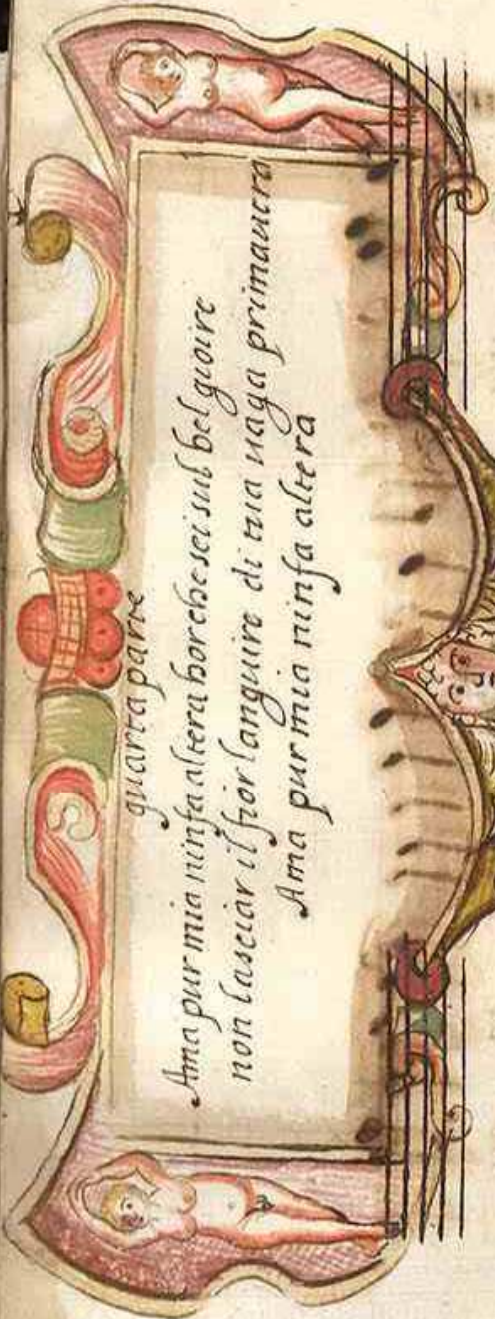 quarta parte
Ama pur mia ninfa altera hor che sei sul bel gioire
non lasciar il fior languire di tua uaga primauera
Ama pur mia ninfa altera